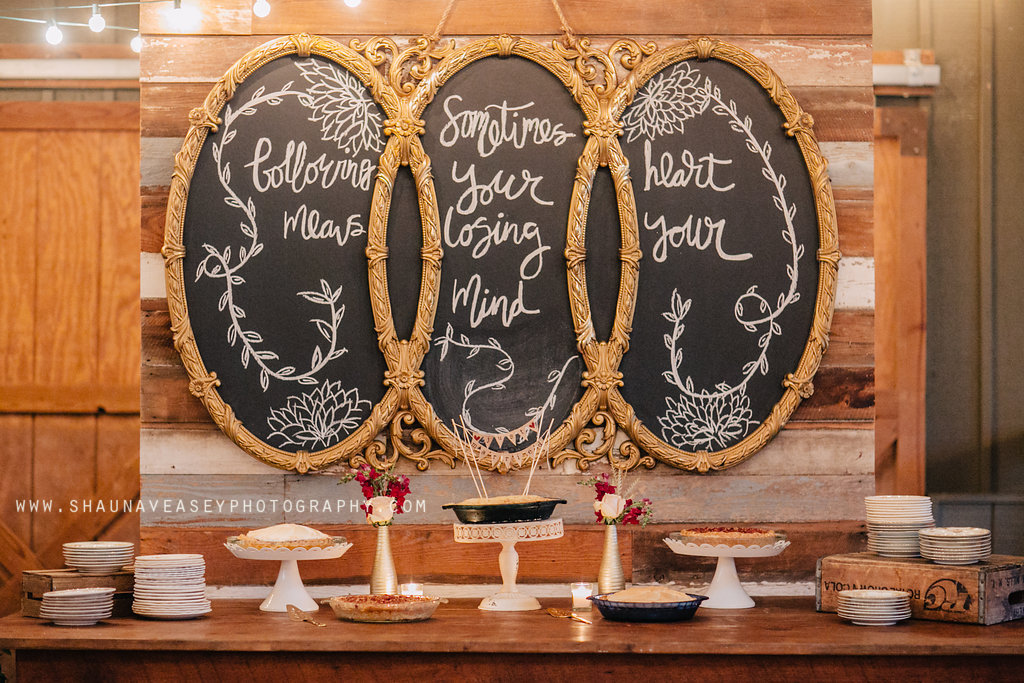 following
means
Sometimes
Your
losing
Mind
heart
your
WWW.SHAUNAVEASEYPHOTOGRAPHY.COM